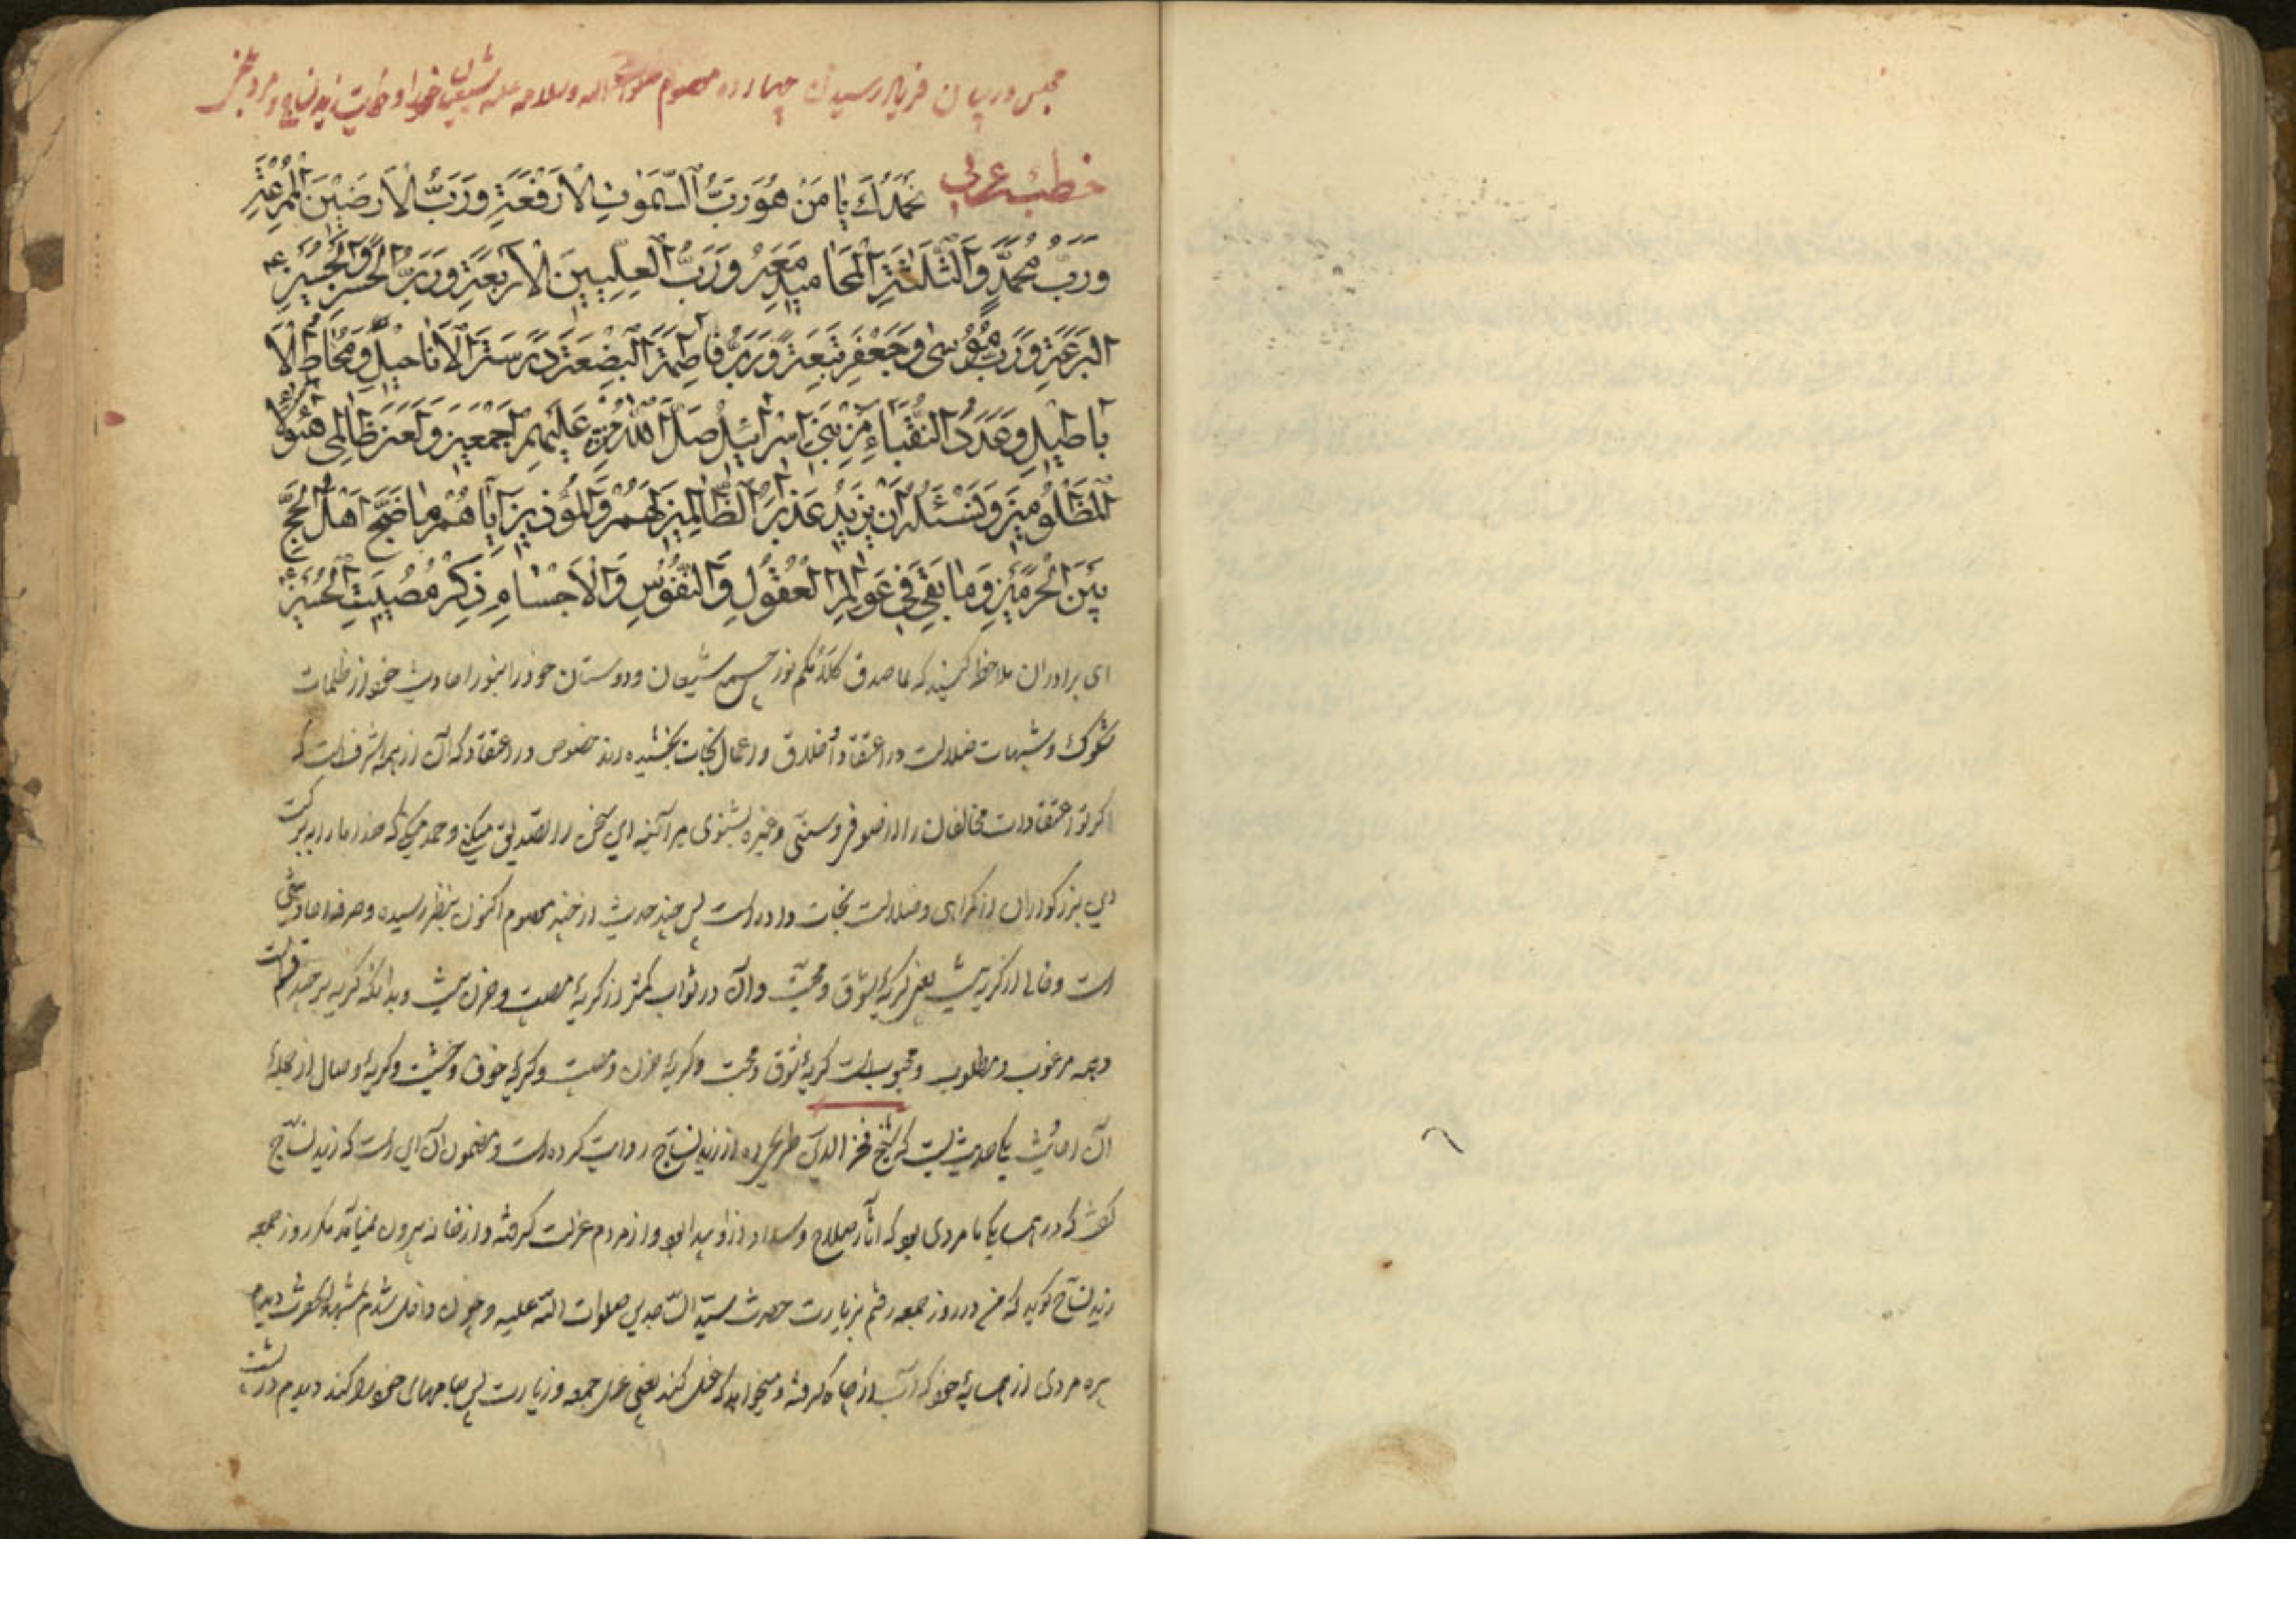 مجلس در بیان فریاد رسیدن چهارده معصوم صلوات الله و سلامه علیه شیعیان خود را و حکایت زید نساج و مرد
خطبه عربی نَحْمَدُكَ يَا مَنْ هُوَ رَبُّ السَّمٰوٰتِ الْاَرْفَعَةِ وَرَبُّ الْاَرَضِينَ
وَرَبُّ مُحَمَّدٍ وَالثَّلٰثَةِ الْمَحَامِيدِ مَعَهُ وَرَبُّ الْعَلِيِّينَ الْاَرْبَعَةِ وَرَبُّ الْحَسَنِ وَالْحُسَيْنِ
وَرَبُّ مُوسٰى وَجَعْفَرٍ وَرَبُّ فَاطِمَةَ الْبَضْعَةِ
بَاطِيلِ وَعَدَدُ النُّقَبَاءِ مِنْ بَنِي اِسْرَائِيلَ صَلِّ اللّٰهُمَّ عَلَيْهِمْ اَجْمَعِينَ وَلَعَنَ ظَالِمِي هٰؤُلَاءِ
الْمَظْلُومِينَ وَنَسْئَلُهُ اَنْ يَزِيدَ عَذَابَ الظَّالِمِينَ لَهُمْ وَالْمُؤْذِينَ اِيَّاهُمْ مَا ضَجَّ اَهْلُ الْحَجِّ
بَيْنَ الْحَرَمَيْنِ وَمَا بَقِيَ فِي عَوَالِمِ الْعُقُولِ وَالنُّفُوسِ وَالْاَجْسَامِ ذِكْرُ مُصِيبَتِ الْحُسَيْنِ
ای برادران ملاحظه کنید که ما صدق كلامكم نور شیعیان و دوستان خود را بنور احادیث خود از ظلمات
شکوک و شبهات ضلالت در اعتقاد و اخلاق و اعمال نجات بخشیده اند خصوص در اعتقاد که آن از همه اشرف است که
اکر تو اعتقادات مخالفان را از صوفی و سنّی و غیره بشنوی هر آینه این سخن را تصدیق میکنی و حمد میکنی که خدا ما را به برکت
این بزرکواران از کمراهی و ضلالت نجات داده است پس چند حدیث از چند معصوم اکنون بنظر رسیده و صرف احادیثی
است و خالی از کریه نیست یعنی کریه شوق و محبّت و آن در ثواب کمتر از کریهٔ مصیبت و حزن نیست و بدانکه کریه بر چند قسم است
و همه مرغوب و مطلوب و محبوب است کریهٔ شوق و محبت و کریهٔ حزن و مصیبت و کریهٔ خوف و خشیت و کریهٔ وصال از جملهٔ
آن احادیث یکی حدیثیست که شیخ فخر الدین طریحی ره از زید نسّاج روایت کرده است و مضمون آن این است که زید نسّاج
کفت که در همسایکی ما مردی بود که آثار صلاح و سداد از او پیدا بود و از مردم عزلت کرفته و از خانه بیرون نمیآمد مکر روز جمعه
زید نسّاج کوید که من در روز جمعه رفتم بزیارت حضرت سیّد السّاجدین صلوات اللّه علیه و چون داخل شدم بمشهد آنحضرت دیدم
مردی از همسایهٔ خود که آب از چاه کرفته و میخواهد که غسل کند یعنی غسل جمعه و زیارت پس جامهای خود را کند دیدم در پشت